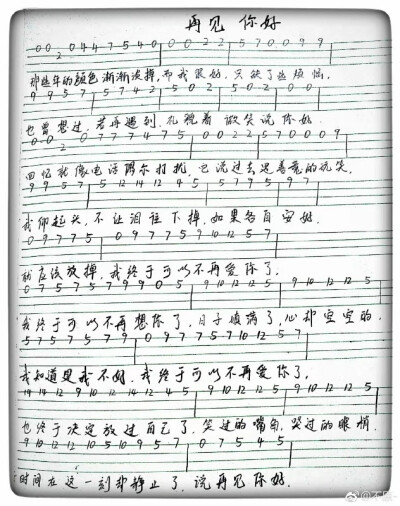 再见 你好
0 0 2 0 4 4 7 5 4 0 0 0 2 2 5 7 0 0 9 9
那些年的颜色渐渐淡掉,而我很好,只缺了些烦恼,
9 9 5 7 5 7 4 2 5 0 2 5 0 2 0 0
也曾想过,若再遇到,礼貌着 微笑说你好.
0 0 2 0 7 7 7 4 7 5 0 0 2 2 5 7 0 0 0 9
回忆就像电话偶尔打扰,已说过去是善意的玩笑,
9 9 5 7 5 12 14 12 4 5 5 7 9 5 9 7
我仰起头,不让泪往下掉,如果各自安好.
0 9 7 7 5 0 9 7 7 5 9 10 12 5 7
就应该放掉,我终于可以不再爱你了,
0 7 5 7 5 7 9 9 0 5 9 10 12 12 5 9 10 12 12 5
我终于可以不再想你了,日子填满了,心却空空的.
5 7 5 7 5 7 9 0 9 7 7 5 7 10 12 5 7
我知道是我不好,我终于可以不再爱你了,
14 14 12 9 10 14 12 10 12 5 9 10 12 12 5 9 10 12 12 5
也终于决定放过自己了,笑过的嘴角,哭过的眼梢,
9 10 12 12 10 5 10 9 5 7 0 7 5 4 5
时间在这一刻却静止了,说再见你好.